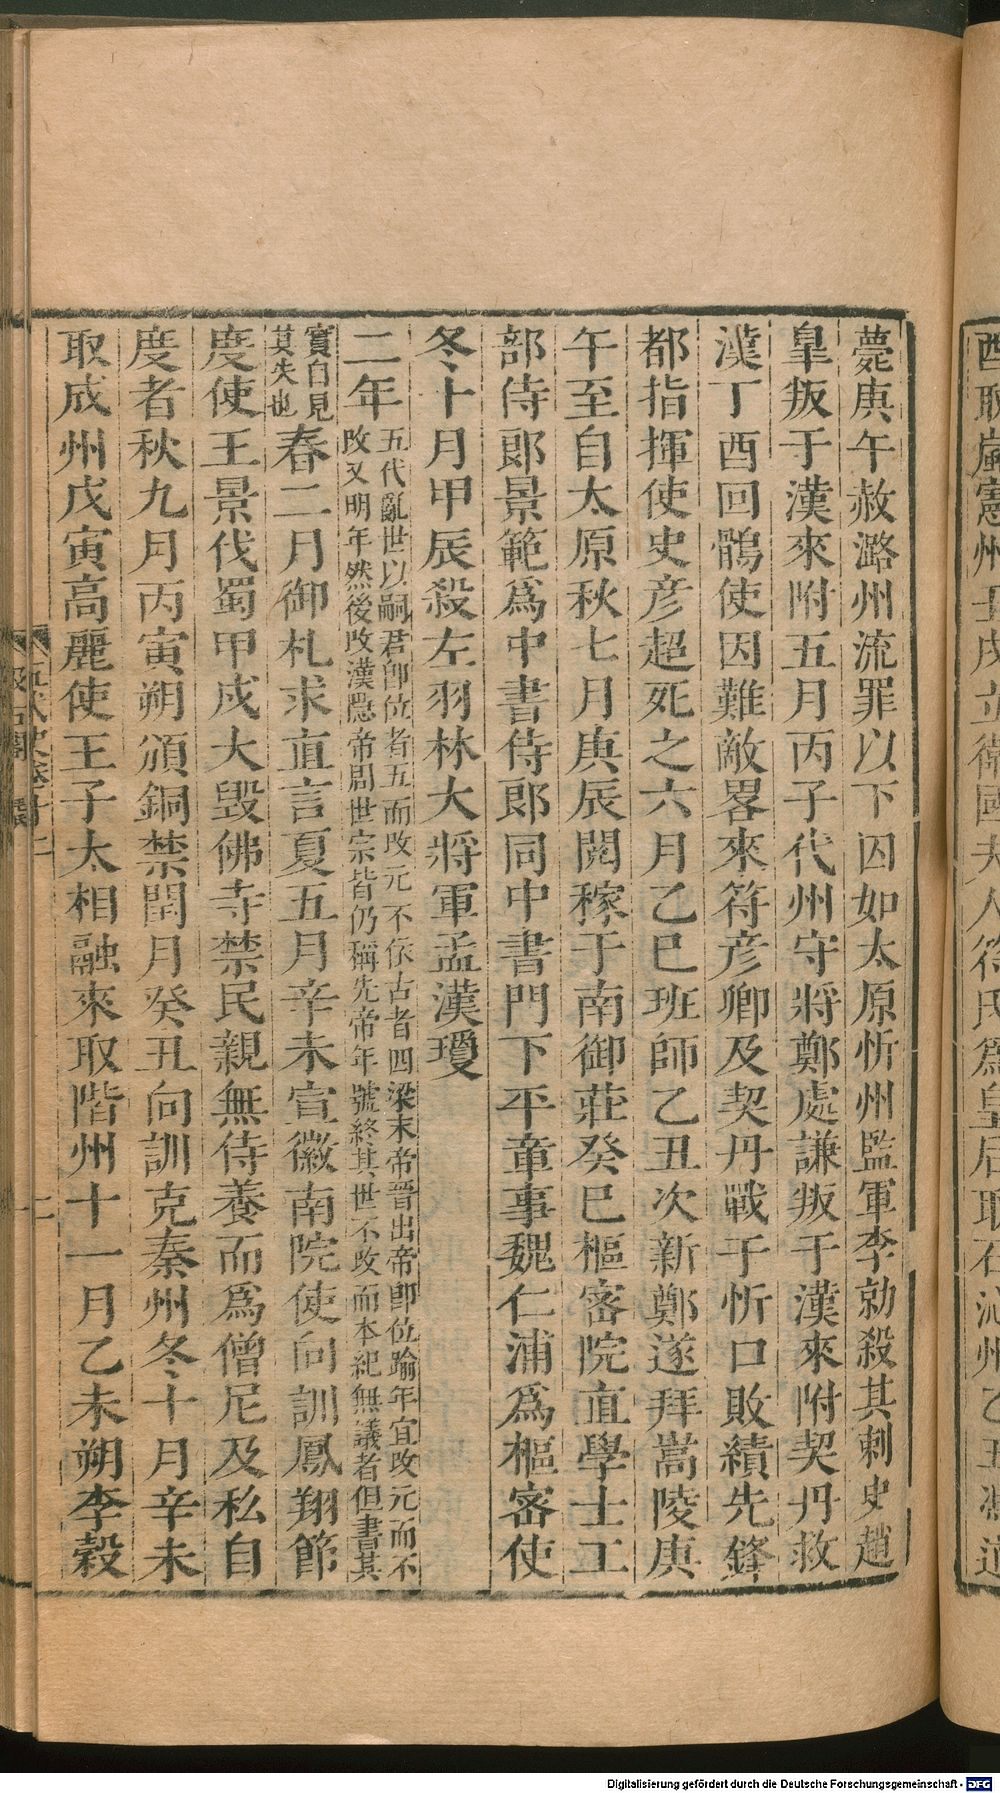 薨庚午赦潞州流罪以下囚如太原忻州監軍李勍殺其刺史趙
皐叛于漢來附五月丙子代州守將鄭處謙叛于漢來附契丹救
漢丁酉回鶻使因難敵畧來符彦卿及契丹戰于忻口敗績先鋒
都指揮使史彦超死之六月乙巳班師乙丑次新鄭遂拜嵩陵庚
午至自太原秋七月庚辰閱稼于南御莊癸巳樞密院直學士工
部侍郎景範爲中書侍郎同中書門下平章事魏仁浦爲樞密使
冬十月甲辰殺左羽林大將軍孟漢瓊
二年
五代亂世以嗣君卽位者五而改元不依古者四梁末帝晉出帝卽位踰年宜改元而不
改又明年然後改漢隱帝周世宗皆仍稱先帝年號終其世不改而本紀無議者但書其
實自見
其失也
春二月御札求直言夏五月辛未宣徽南院使向訓鳳翔節
度使王景伐蜀甲戌大毁佛寺禁民親無侍養而爲僧尼及私自
度者秋九月丙寅朔頒銅禁閏月癸丑向訓克秦州冬十月辛未
取成州戊寅高麗使王子太相融來取階州十一月乙未朔李穀
二
Digitalisierung gefördert durch die Deutsche Forschungsgemeinschaft - DFG